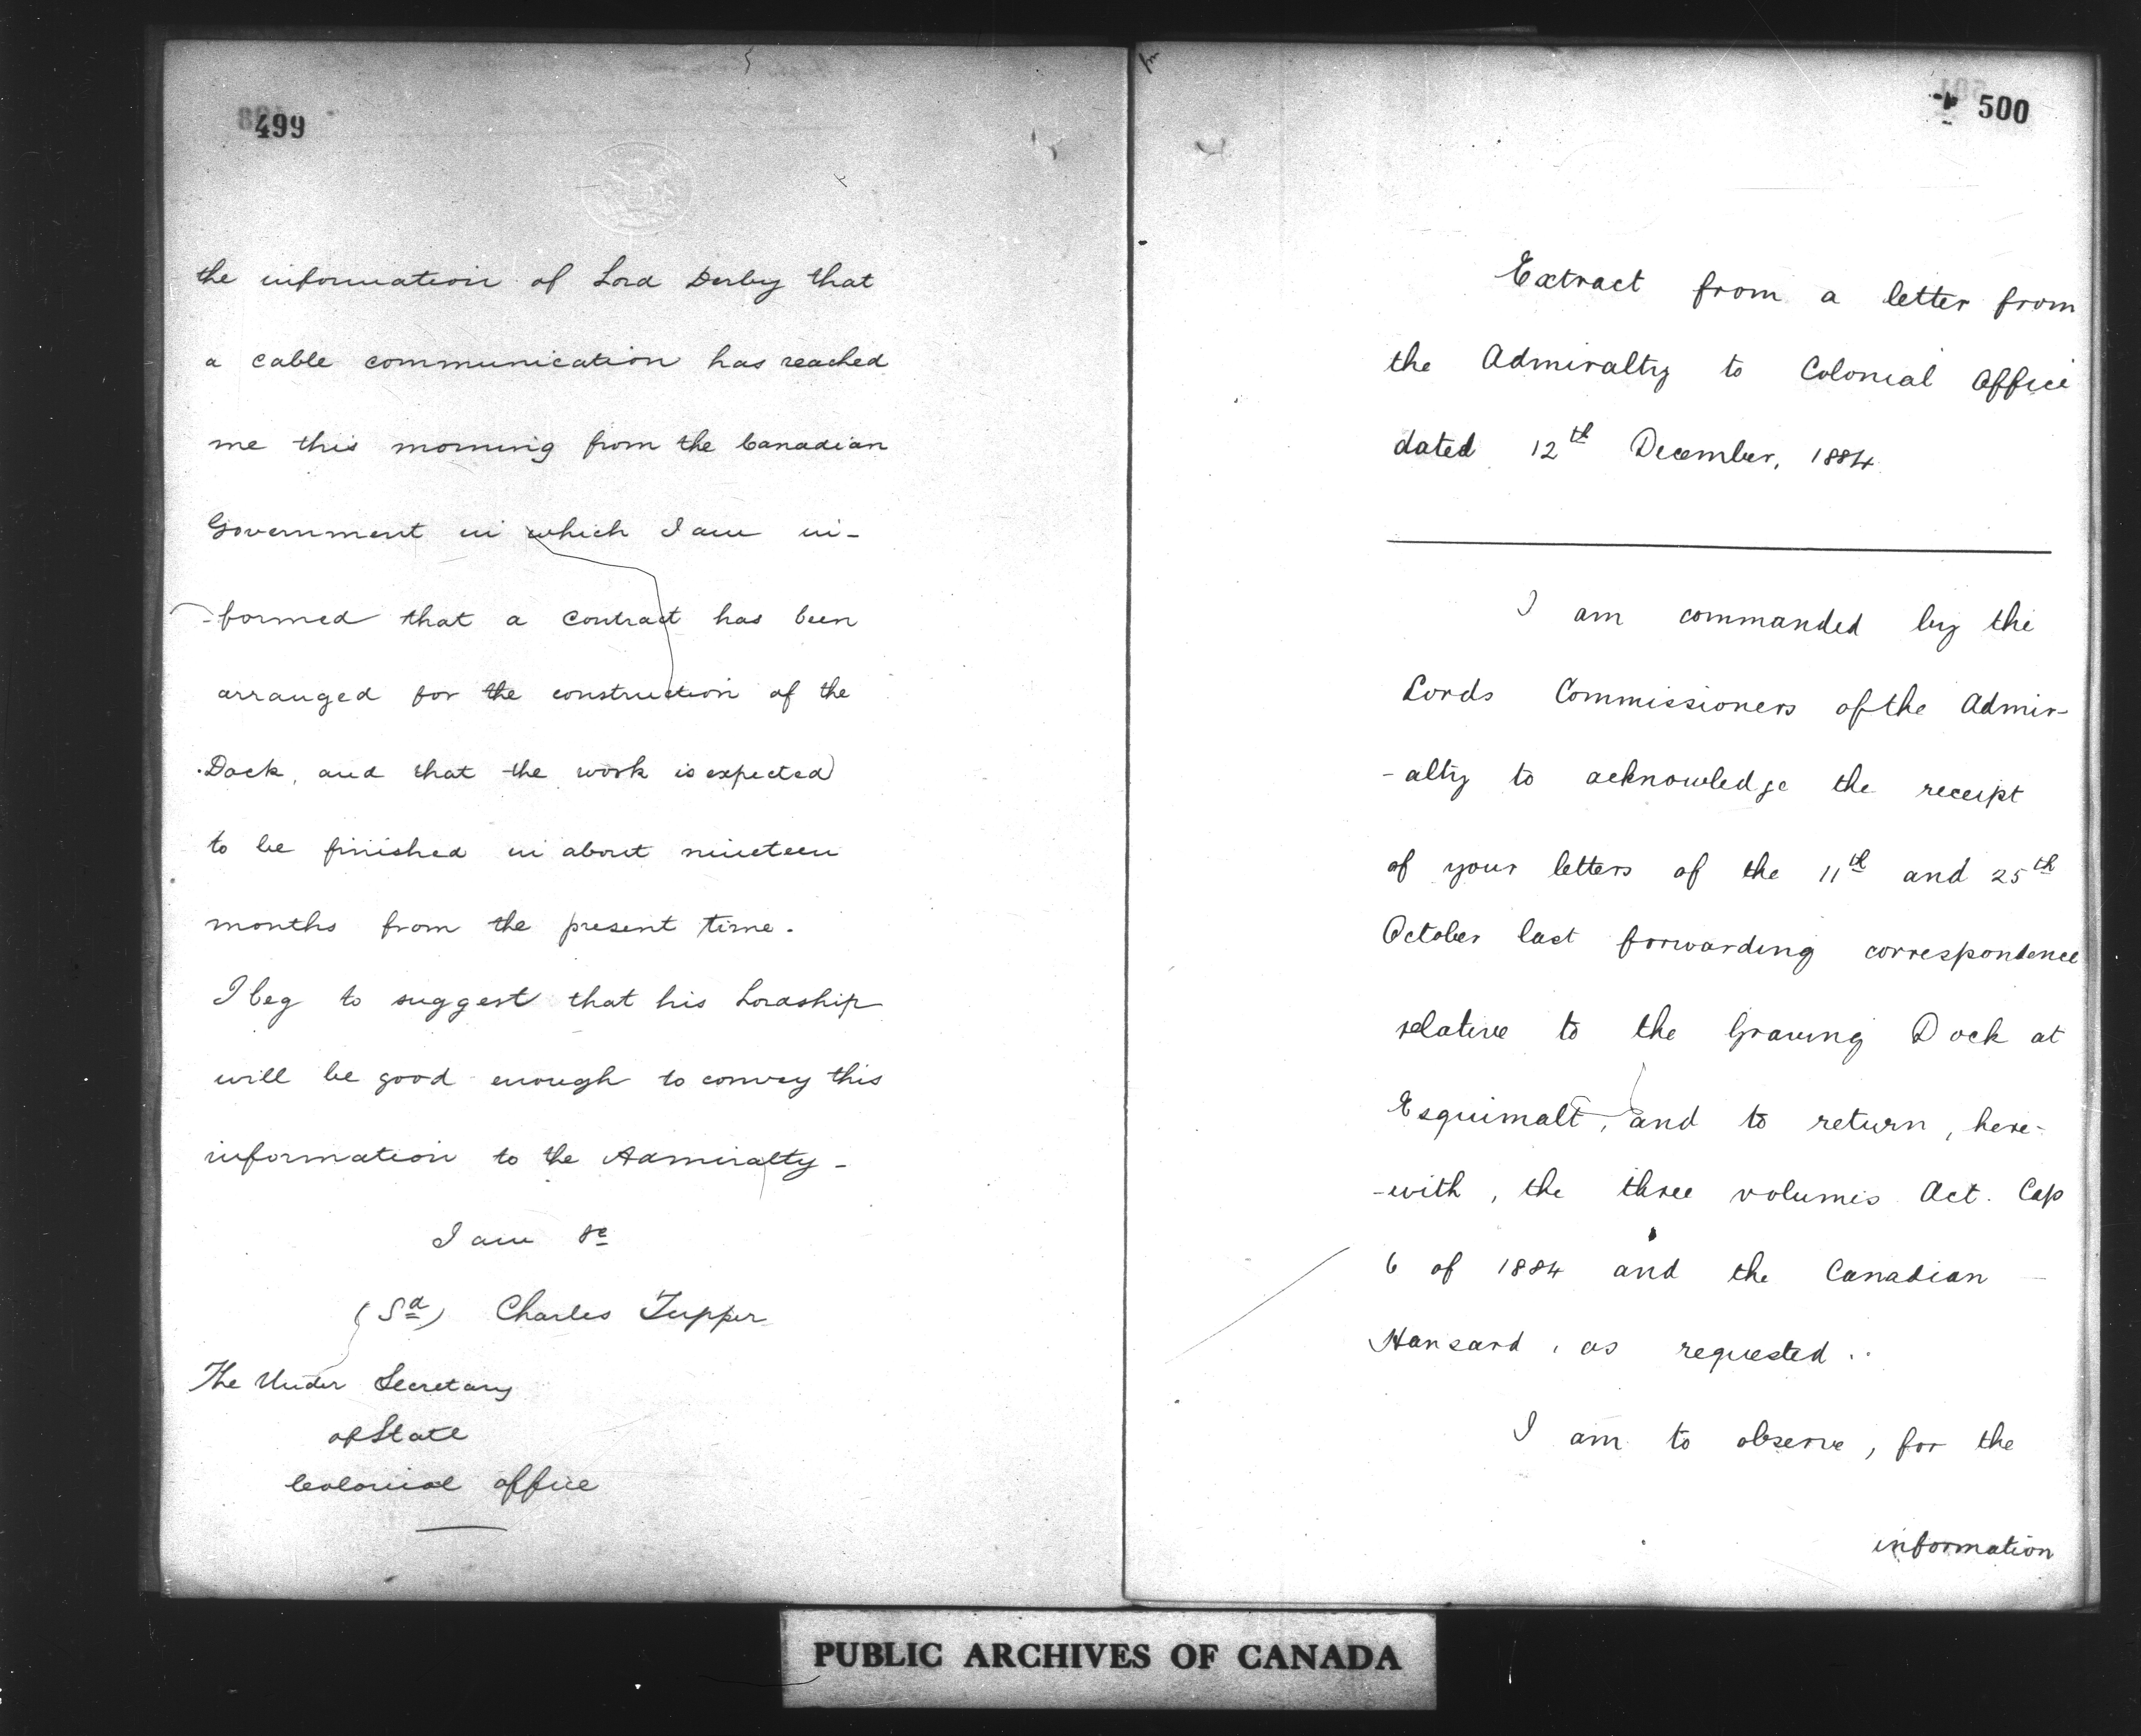 499
the information of Lord Derby that
a cable communication has reached
me this morning from the Canadian
Government in which I am in-
-formed that a contract has been
arranged for the construction of the
Dock, and that the work is expected
to be finished in about nineteen
months from the present time.
I beg to suggest that his Lordship
will be good enough to convey this
information to the Admiralty -
I am &c
(Sd) Charles Tupper
The Under Secretary
of State
Colonial office
500
Extract from a letter from
the Admiralty to Colonial Office
dated 12th December, 1884
I am commanded by the
Lords Commissioners of the Admir-
-alty to acknowledge the receipt
of your letters of the 11th and 25th
October last forwarding correspondence
relative to the Graving Dock at
Esquimalt, and to return, here-
-with, the three volumes Act. Cap
6 of 1884 and the Canadian
Hansard, as requested.
I am to observe, for the
information
PUBLIC ARCHIVES OF CANADA